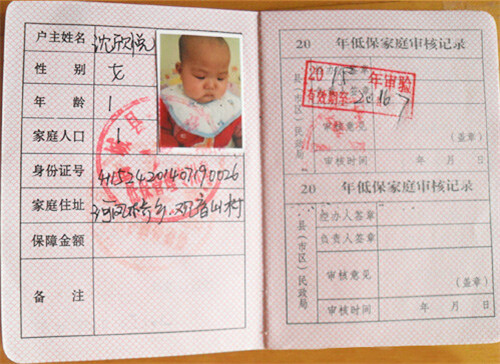 户主姓名 沈欣悦
性 别 女
年 龄 1
家庭人口 1
身份证号
家庭住址 观音山村
保障金额
备 注
20 年低保家庭审核记录
县(市区)民政局
经办人签章
负责人签章
审核意见
(盖章)
审核时间 年 月 日
2015年审验
有效期至2016.7
20 年低保家庭审核记录
县(市区)民政局
经办人签章
负责人签章
审核意见
(盖章)
审核时间 年 月 日